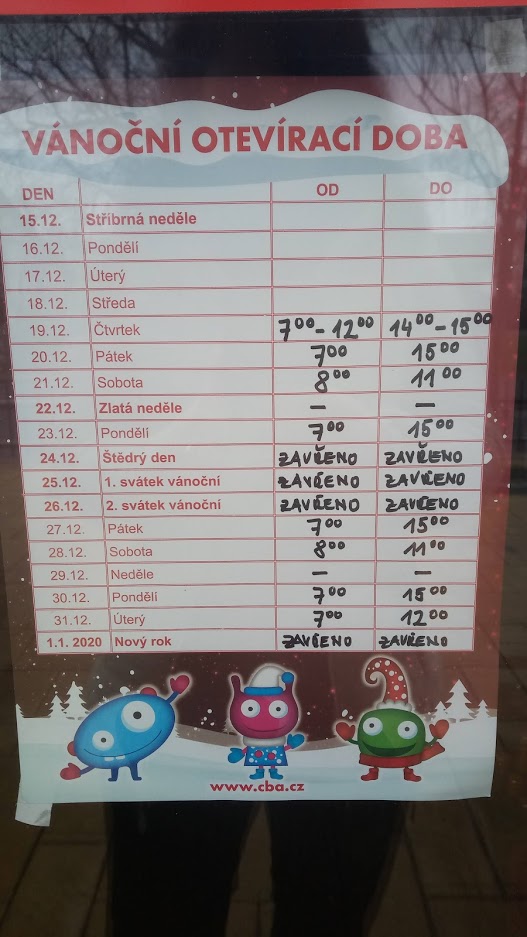 VÁNOČNÍ OTEVÍRACÍ DOBA
DEN OD DO
15.12. Stříbrná neděle
16.12. Pondělí
17.12. Úterý
18.12. Středa
19.12. Čtvrtek 7⁰⁰-12⁰⁰ 14⁰⁰-15⁰⁰
20.12. Pátek 7⁰⁰ 15⁰⁰
21.12. Sobota 8⁰⁰ 11⁰⁰
22.12. Zlatá neděle – –
23.12. Pondělí 7⁰⁰ 15⁰⁰
24.12. Štědrý den ZAVŘENO ZAVŘENO
25.12. 1. svátek vánoční ZAVŘENO ZAVŘENO
26.12. 2. svátek vánoční ZAVŘENO ZAVŘENO
27.12. Pátek 7⁰⁰ 15⁰⁰
28.12. Sobota 8⁰⁰ 11⁰⁰
29.12. Neděle – –
30.12. Pondělí 7⁰⁰ 15⁰⁰
31.12. Úterý 7⁰⁰ 12⁰⁰
1.1. 2020 Nový rok ZAVŘENO ZAVŘENO
www.cba.cz